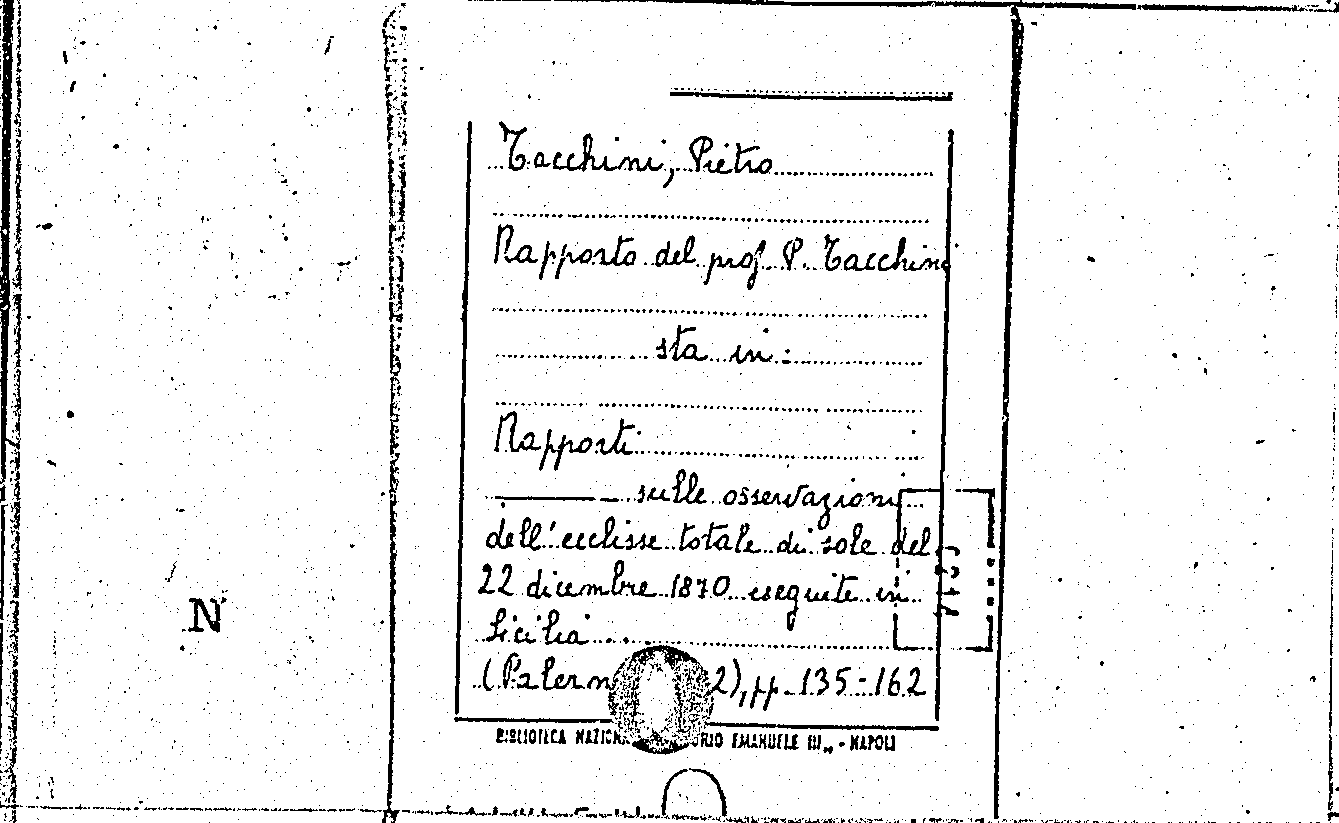 Tacchini, Pietro
Rapporto del prof. P. Tacchini
sta in:
Rapporti
——— sulle osservazioni
dell'ecclisse totale di sole del
22 dicembre 1870 eseguite in
Sicilia...
(Palerm 2), pp. 135-162
BIBLIOTECA NAZIONA ORIO EMANUELE III„ - NAPOLI
N